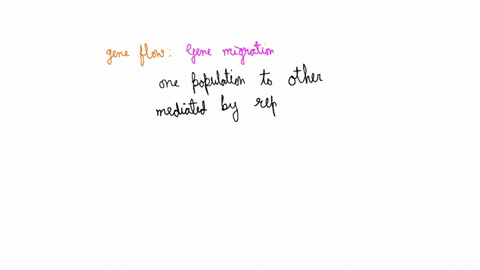 gene flow: Gene migration
one population to other
mediated by rep